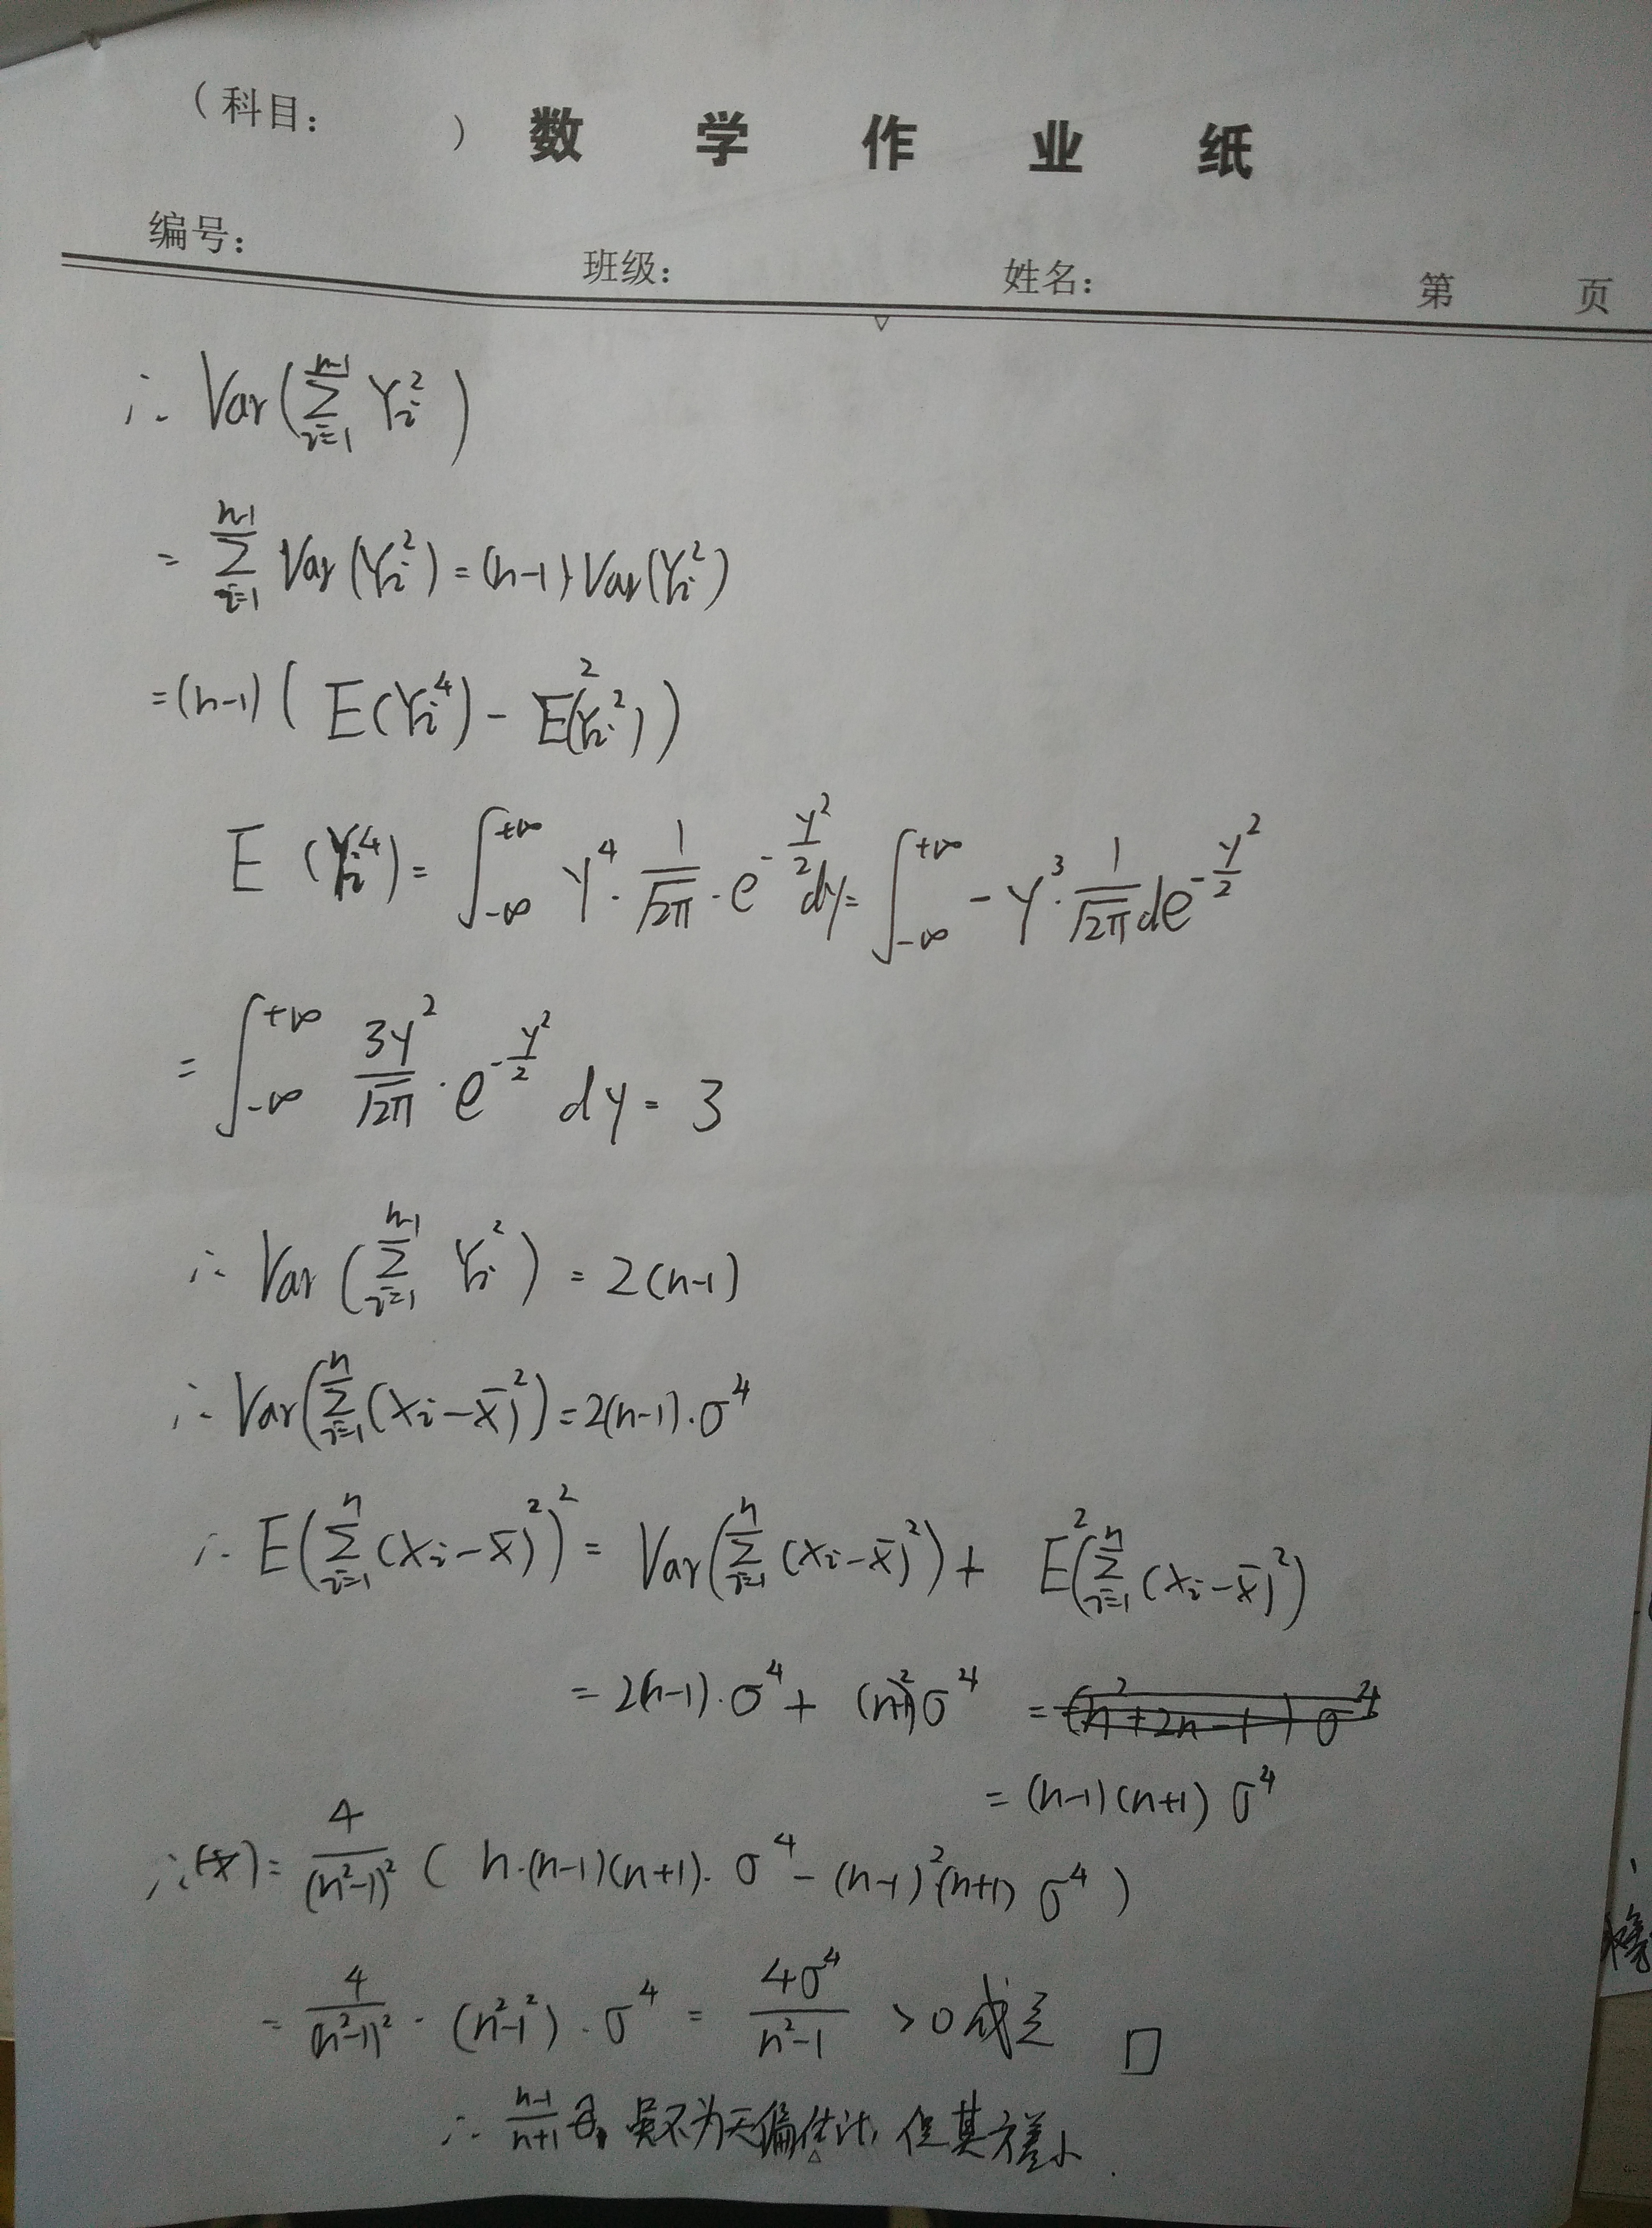 (科目： ) 数 学 作 业 纸
编号： 班级： 姓名： 第 页
∴ Var(∑_{i=1}^{n-1} Y_i^2)
= ∑_{i=1}^{n-1} Var(Y_i^2) = (n-1) Var(Y_i^2)
= (n-1) ( E(Y_i^4) - E^2(Y_i^2) )
E (Y_i^4) = ∫_{-∞}^{+∞} y^4 · \frac{1}{\sqrt{2π}} · e^{-\frac{y^2}{2}} dy = ∫_{-∞}^{+∞} -y^3 · \frac{1}{\sqrt{2π}} de^{-\frac{y^2}{2}}
= ∫_{-∞}^{+∞} \frac{3y^2}{\sqrt{2π}} · e^{-\frac{y^2}{2}} dy = 3
∴ Var (∑_{i=1}^{n-1} Y_i^2) = 2(n-1)
∴ Var(∑_{i=1}^{n} (X_i - \bar{X})^2) = 2(n-1) · σ^4
∴ E(∑_{i=1}^{n} (X_i - \bar{X})^2)^2 = Var(∑_{i=1}^{n} (X_i - \bar{X})^2) + E^2(∑_{i=1}^{n} (X_i - \bar{X})^2)
= 2(n-1) · σ^4 + (n-1)^2 σ^4 = (n^2+2n-1) σ^4
= (n-1)(n+1) σ^4
∴ (*) = \frac{4}{(n^2-1)^2} ( n·(n-1)(n+1) · σ^4 - (n-1)^2 (n+1) σ^4 )
= \frac{4}{(n^2-1)^2} · (n^2-1^2) · σ^4 = \frac{4σ^4}{n^2-1} > 0 成立 □
∴ \frac{n-1}{n+1} 虽不为无偏估计, 但其方差小.